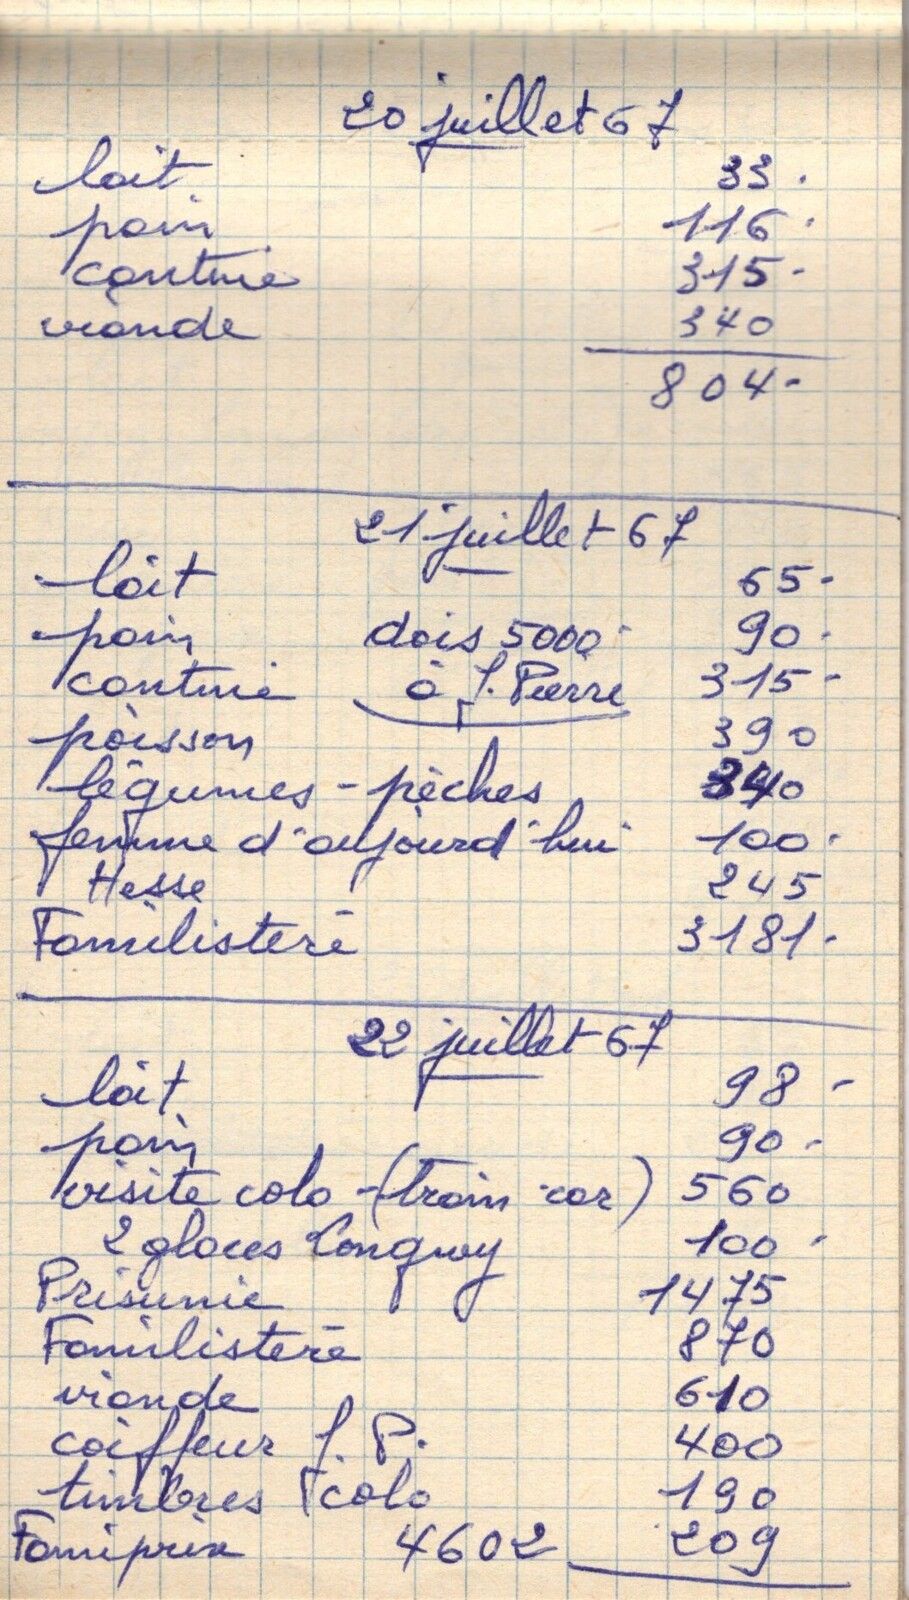 20 juillet 67
lait 33.
pain 116.
cantine 315-
viande 340
804-
21 juillet 67
lait 65-
pain dois 5000 90.
cantine à J. Pierre 315-
poisson 390
légumes - pèches 340
femme d'aujourd'hui 100.
Hesse 245
Familistère 3181.
22 juillet 67
lait 98-
pain 90.
visite colo - (train car) 560
2 glaces Longwy 100.
Prisunic 1475
Familistère 870
viande 610
coiffeur J. P. 400
timbres colo 190
Famiprix 4602 209